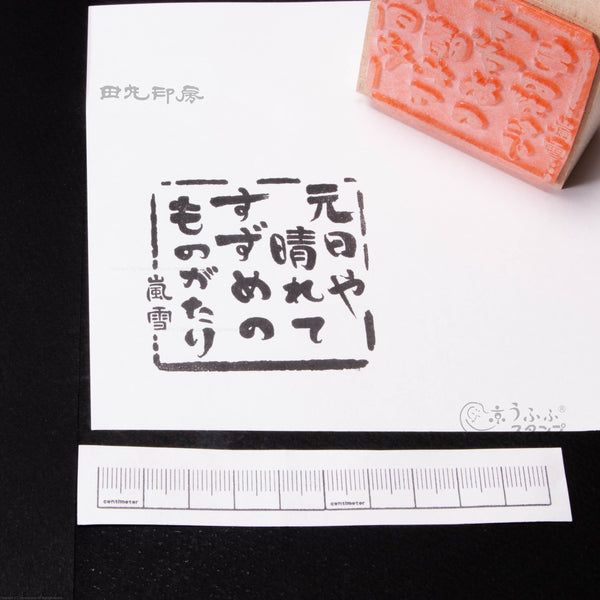 田丸印房
元日や
晴れて
すずめの
ものがたり
嵐雪
京うふふ®
スタンプ
centimeter
centimeter